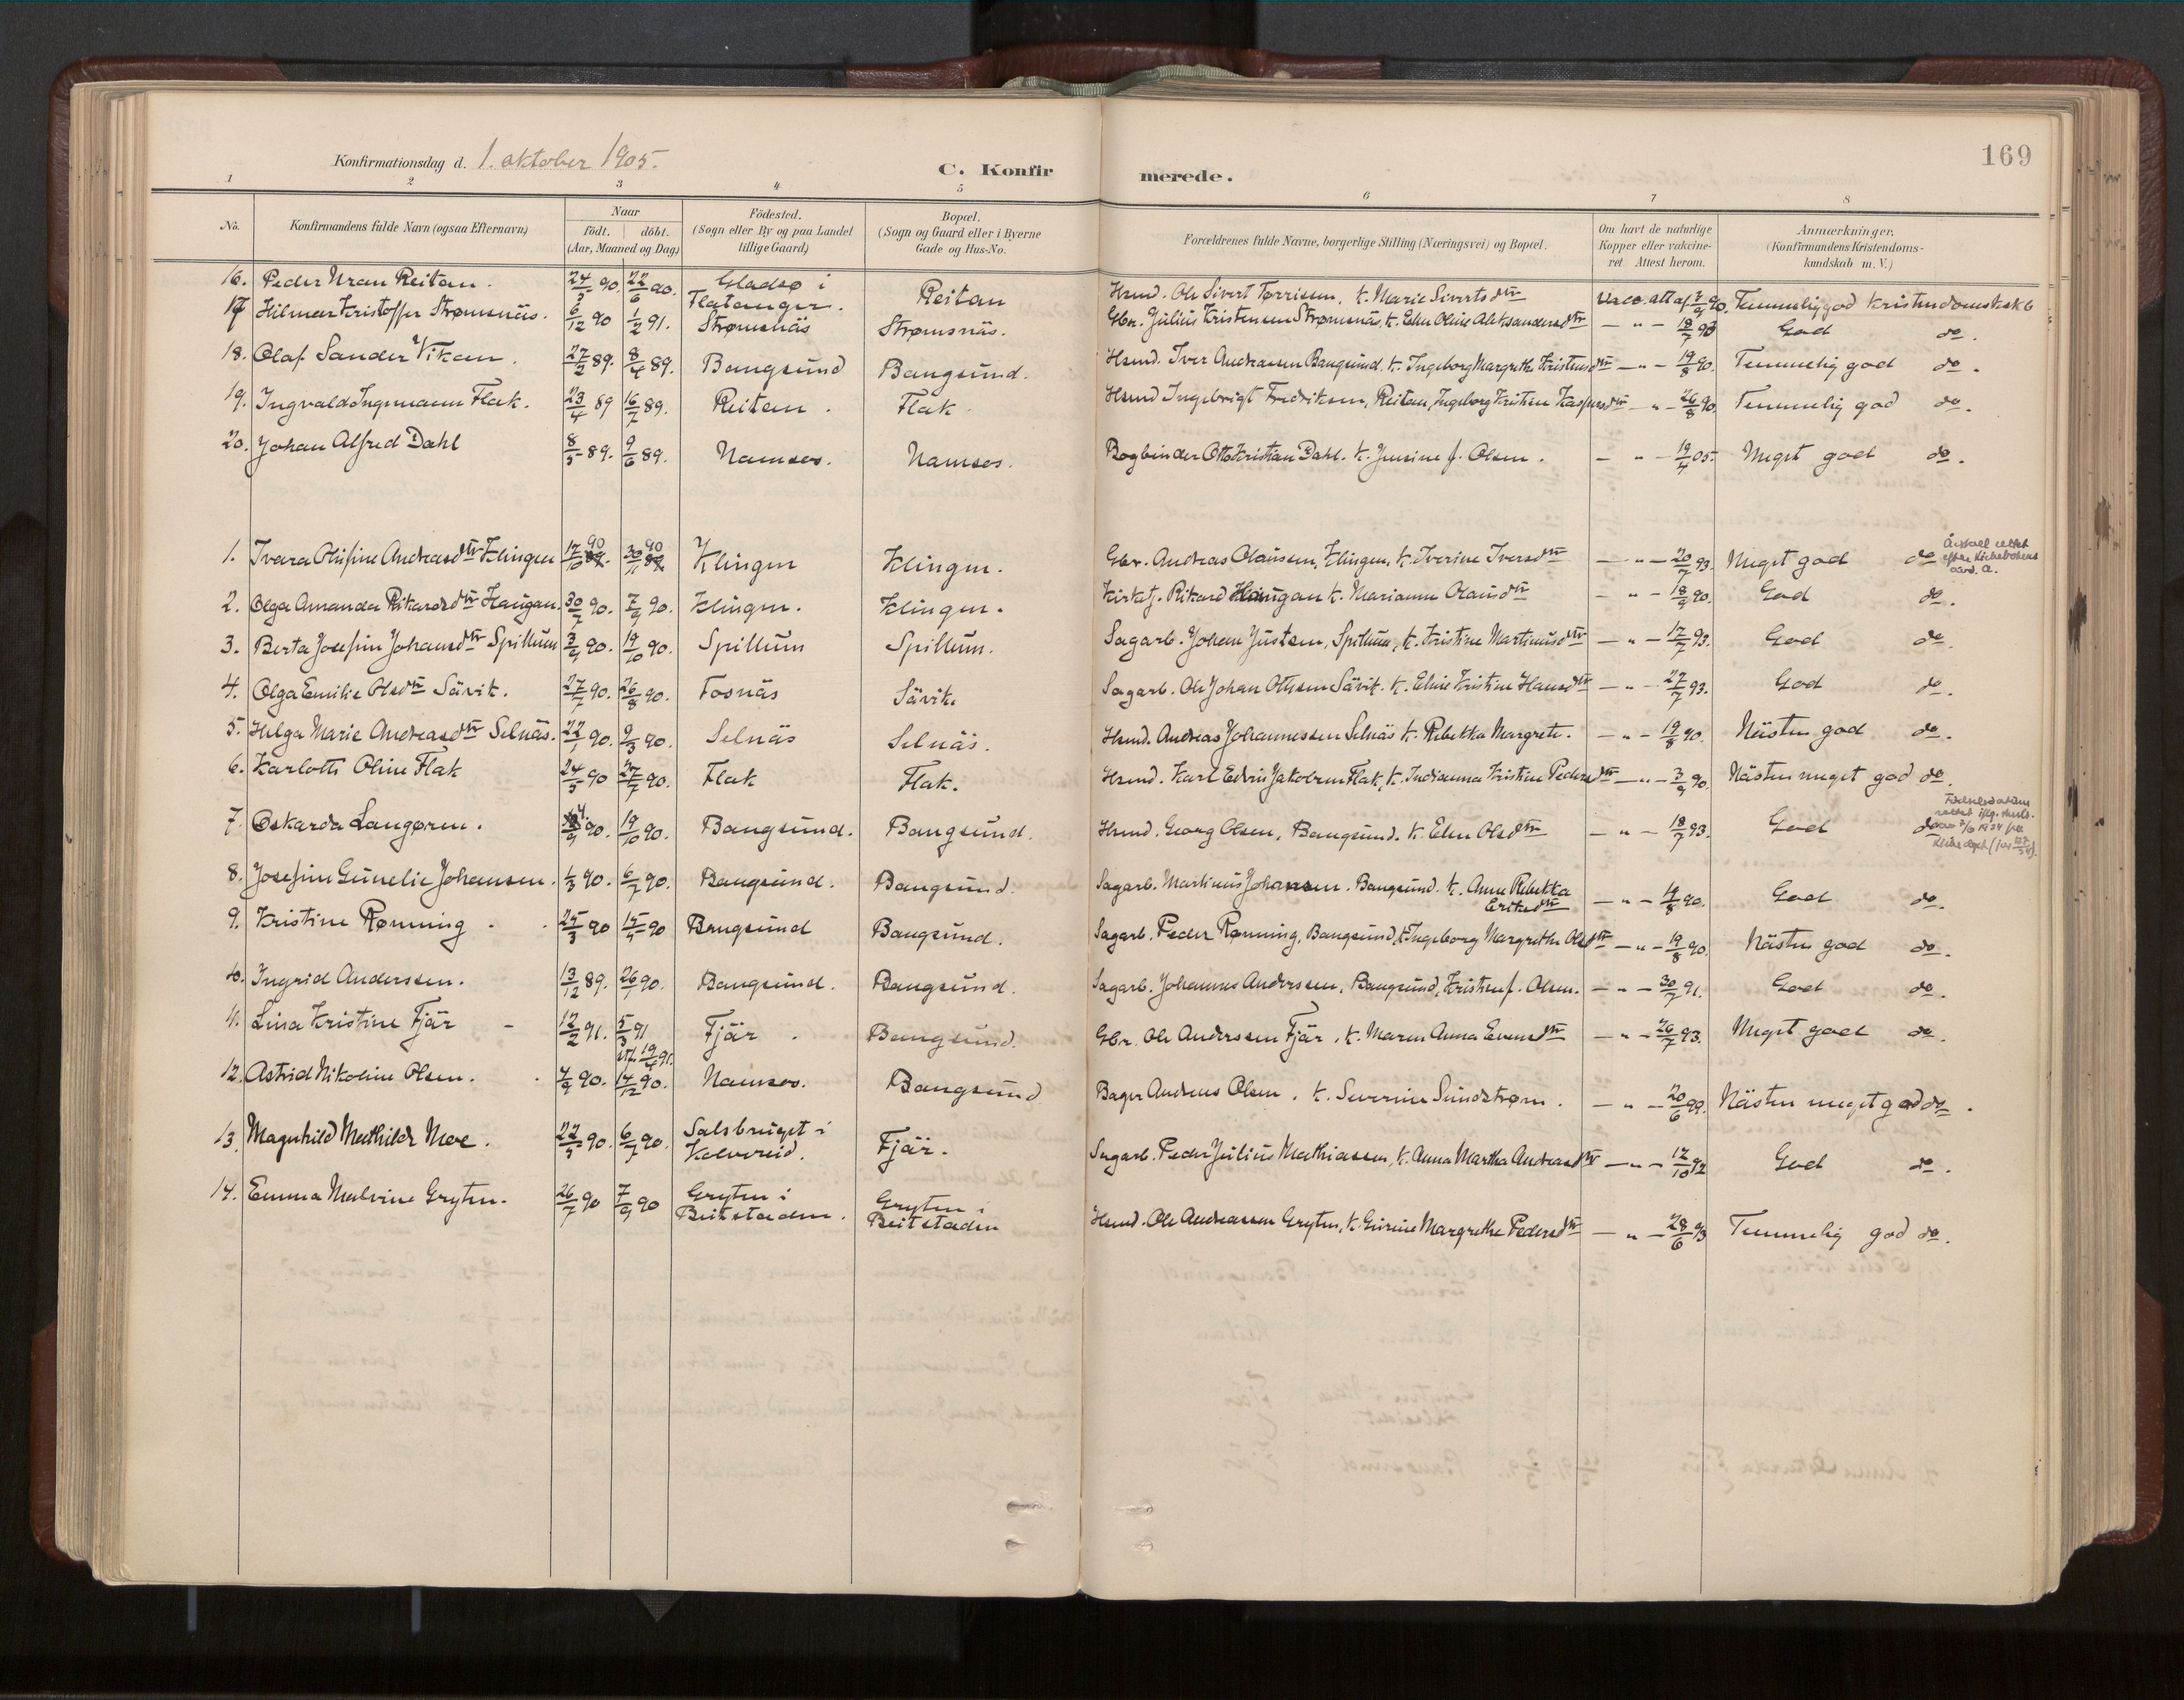 169
Konfirmationsdag d. 1. oktober 1905.
C. Konfirmerede.
1 2 3 4 5 6 7 8
No. Konfirmandens fulde Navn (ogsaa Efternavn) Naar födt. döbt. (Aar, Maaned og Dag) Födested. (Sogn eller By og paa Landet tillige Gaard) Bopæl. (Sogn og Gaard eller i Byerne Gade og Hus-No. Forældrenes fulde Navne, borgerlige Stilling (Næringsvei) og Bopæl. Om havt de naturlige Kopper eller vakcineret Attest herom. Anmærkninger. (Konfirmandens Kristendomskundskab m. V.)
16. Peder Uran Reitan. 24/5 90. 22/6 90. Gladsø i Flatanger. Reitan Hsmd. Ole Sivert Tørrissen, k. Marie Sivertsdtr Vacc. att af 3/9 90. Temmelig god kristendomskskb
17 Hilmar Kristoffer Strømsnäs. 6/12 90 1/2 91. Strømsnäs Strømsnäs. Gbr. Julius Kristensen Strømsnäs, k. Elen Oline Aleksandersdtr — " — 18/7 93 God do.
18. Olaf Sander Vikan. 27/2 89. 8/4 89. Bangsund Bangsund. Hsmd. Iver Andreassen Bangsund. k. Ingeborg Margrethe Kristensdtr — " — 19/8 90. Temmelig god do.
19. Ingvald Ingemann Flak. 23/4 89 16/7 89. Reitan. Flak Hsmd Ingebrigt Fredriksen, Reitan, Ingeborg Kristine Kaspersdtr — " — 26/8 90. Temmelig god do.
20. Johan Alfred Dahl 8/5 89. 9/6 89. Namsos. Namsos. Bogbinder Otto Kristian Dahl. k. Jensine f. Olsen. — " — 19/4 05. Meget god do.
1. Ivara Olufine Andreasdtr Klingen 17/10 90 30/11 90 Klingen Klingen. Gbr. Andreas Olaussen, Klingen, k. Iverine Iversdtr — " — 20/7 93. Meget god do Årstall rettet efter Kirkebokens avd. A.
2. Olga Amanda Rikardsdtr Haugan. 30/7 90. 7/9 90. Klingen. Klingen. Kirketj. Rikard Haugan k. Marianne Olausdtr — " — 18/9 90. God do.
3. Berta Josefine Johansdtr Spillum 3/9 90. 19/10 90. Spillum Spillum. Sagarb. Johan Justsen, Spillum, k. Kristine Martinusdtr — " — 17/7 93. God do.
4. Olga Emilie Olsdtr Sävik. 27/7 90. 26/8 90. Fosnäs Sävik. Sagarb. Ole Johan Olsen Sävik. k. Elise Kristine Hansdtr — " — 27/7 93. God do.
5. Helga Marie Andreasdtr Selnäs. 22/1 90. 9/3 90. Selnäs Selnäs. Hsmd. Andreas Johannessen Selnäs k. Rebekka Margrete. — " — 19/8 90. Nästen god do.
6. Karlotte Oline Flak 24/5 90 27/7 90. Flak Flak. Hsmd. Karl Edvin Jakobsen Flak, k. Indianna Kristine Pedersdtr — " — 3/9 90. Nästen meget god do.
7. Oskarda Langøren. 4/9 90. 19/10 90. Bangsund. Bangsund. Hsmd. Georg Olsen, Bangsund. k. Elen Olsdtr — " — 18/7 93. God do Födselsdatum rettet
8. Josefine Gunelie Johansen. 1/3 90. 6/7 90. Bangsund. Bangsund. Sagarb. Martinus Johansen. Bangsund. k. Anne Rebekka Eriksdtr — " — 19/8 90. God do.
9. Kristine Rønning. 25/3 90 15/5 90 Bangsund Bangsund. Sagarb. Peder Rønning, Bangsund, k. Ingeborg Margrethe Olsdtr — " — 19/8 90. Nästen god do.
10. Ingrid Anderssen. 13/12 89. 26/1 90. Bangsund. Bangsund. Sagarb. Johannes Anderssen, Bangsund, Kristine f. Olsen. — " — 30/7 91. God do.
11. Lina Kristine Fjär 12/2 91. 5/3 91 stf. 19/4 91. Fjär. Bangsund. Gbr. Ole Anderssen Fjär. k. Maren Anna Evensdtr — " — 26/7 93. Meget god do.
12. Astrid Nikoline Olsen. 4/9 90. 14/12 90. Namsos. Bangsund Bager Andreas Olsen. k. Severine Sundstrøm. — " — 20/6 99. Nästen meget god do.
13. Magnhild Mathilde Moe. 22/5 90. 6/7 90. Salsbruget i Kolvereid. Fjär. Sagarb. Peder Julius Mathiassen, k. Anna Martha Andreasdtr — " — 12/10 92 God do.
14. Emma Malvine Gryten. 26/7 90 7/9 90 Gryten i Beitstaden. Gryten i Beitstaden Hsmd. Ole Andreassen Gryten, k. Gurine Margrethe Pedersdtr — " — 28/6 93 Temmelig god do.